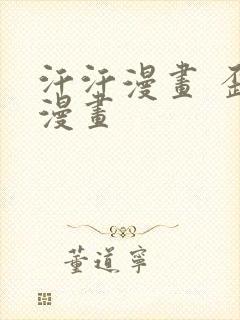 汗汗漫畫
漫畫
董道寧